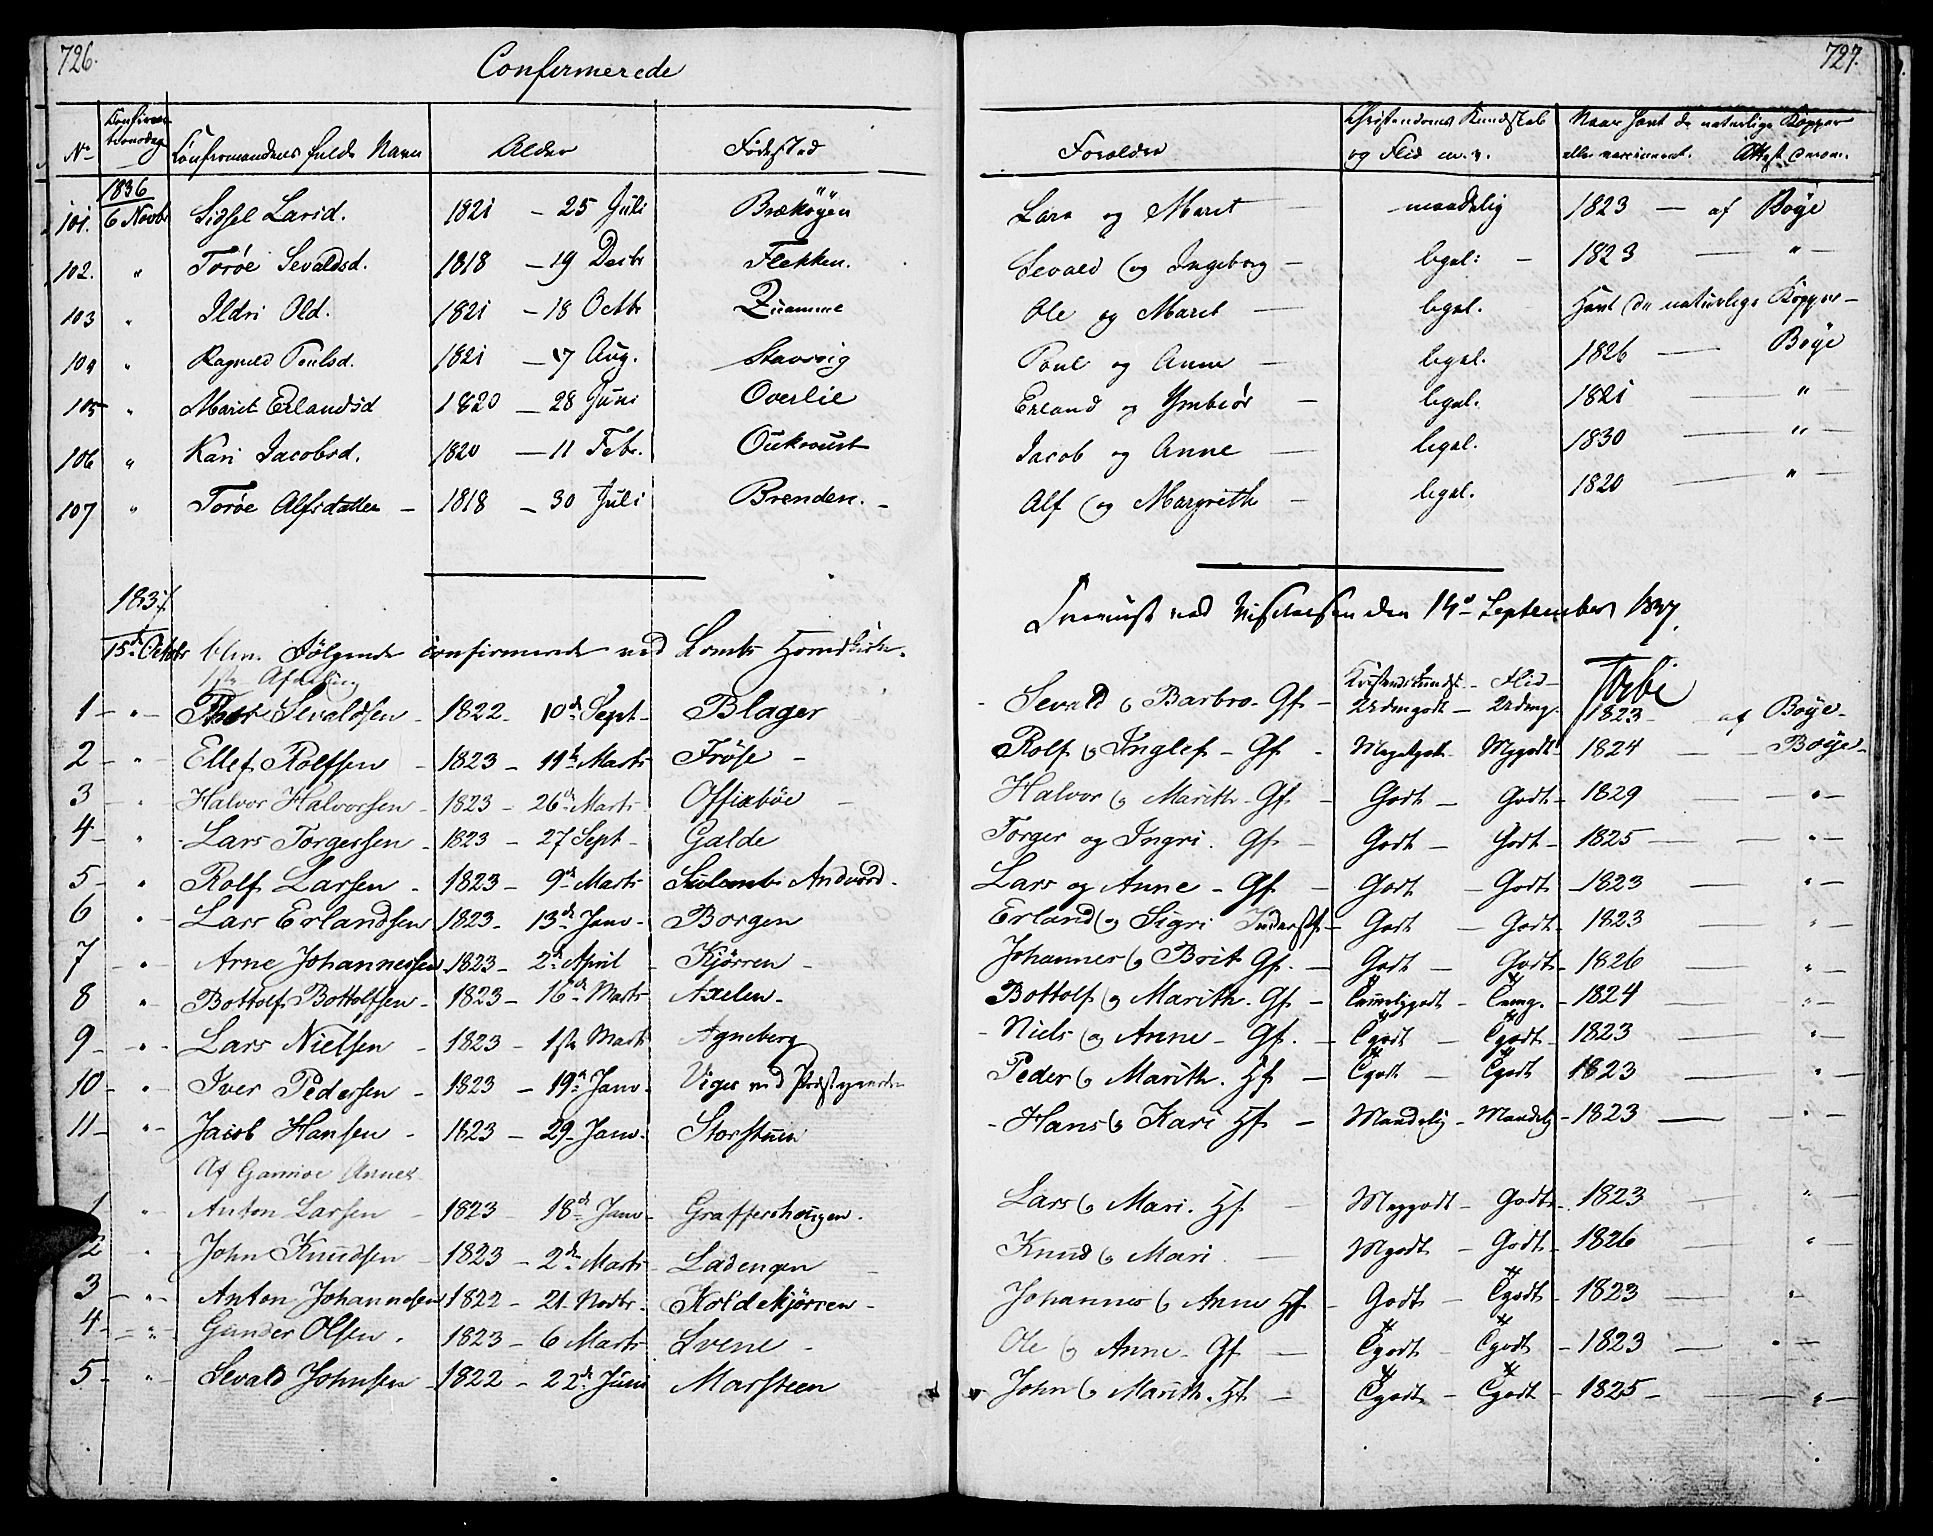 726.
Confirmerede
No Confirmationsdag Confirmandens fulde Navn Alder Fødested
1836
101. 6 Novbr Sissel Larsd. 1821 - 25 Juli Brækøyen
102. " Torøe Sevaldsd. 1818 - 19 Decbr Flekken.
103 " Ildri Olsd. 1821 - 18 Octbr Qvamme
104 " Ragnild Poulsd. 1821 - 7 Aug. Stavrvig
105 " Marit Erlandsd 1820 - 28 Juni Overlie
106 " Kari Jacobsd. 1820 - 11 Febr.
107 " Torøe Alfsdatter - 1818 - 30 Juli Brenden. -
1837
15de Octobr blev Følgende confirmerede ved Lomb Hovedkirke.
1ste Afdeling
1 - " - Thor Sevaldsen - 1822 - 10de Sept - Blager
2 - " - Ellef Rolfsen - 1823 - 11te Marts Frøse -
3 - " Halvor Halvorsen - 1823 - 26de Marts Offigbøe -
4 - " - Lars Torgersen - 1823 - 27 Sept - Galde
5 - " Rolf Larsen - 1823 - 9de Marts Sulemb Andvord -
6 " - Lars Erlandsen 1823 - 13de Janv - Borgen
7 - " Arne Johannessen 1823 - 2de April - Kjörren -
8 " Bottolf Bottolfsen - 1823 - 16de Marts Axelen -
9 - " - Lars Nielsen - 1823 - 1ste Marts Agneberg
10 - " - Iver Pedersen - 1823 - 19de Janv - Viger ved Præstegaarden
11 - " - Jacob Hansen - 1823 - 29 - Janv - Storstuen
Af Garmoe Annex
1 " - Anton Larsen - 1823 - 18de Janv - Graffershougen.
2 " John Knudsen - 1823 - 2de Marts - Ladengen -
3 - " - Anton Johannesen 1822 - 21 - Novbr - Koldekjörren -
4 - " - Gunder Olsen. 1823 - 6 Marts Svene -
5 - " - Sevald Johnsen - 1822 - 22de Juni Marsteen
727.
Forældre Christendoms Kundskab og Flid m. v. Naar havt de naturlige Kopper eller vaccineret. Attest derom.
Lars og Marit - maadelig 1823 - af Bøye
Sevald og Ingeborg - legal: - 1823 - " -
Ole og Marit - legal. Havt de naturlige Kopper -
Poul og Anne - legal. 1826 - Bøye
Erland og Ymbiør - legal. 1821 - "
Jacob og Anne - legal. 1830 - " -
Alf og Margrethe - legal. 1820 - " -
Præviist ved Visitatsen den 14de September 1837.
- Sevald og Barbro - Gf - Kristendkundsk - Flid - Udmgodt - Udmg. 1823 - af Bøye -
Rolf og Inglef - Gf - Megetgodt Mggodt 1824 - Bøye -
Halvor og Marith - Gf - Godt - Godt - 1829 - " -
Torger og Ingri. Gf - Godt - Godt - 1825 - " -
Lars og Anne - Gf - Godt - Godt - 1823 - " -
Erland og Sigri Inderstf - Godt - Godt - 1823 - "
Johannes og Brit Gf. - Godt - Godt - 1826 - "
Bottolf og Marith. Gf - Temmeliggodt - Temg. - 1824 - "
- Niels og Anne - Gf. - Tgodt - Tgodt - 1823 - "
Peder og Marith. Hf - Tgodt - Tgodt 1823 - " -
- Hans og Kari Hf - Maadelig - Maadelg - 1823 - " -
Lars og Mari. Hf - Meggodt - Godt - 1823 - "
Knud og Mari - Mgodt - Godt - 1826 - "
Johannes og Anne Hf - Godt - Tgodt - 1823 - "
Ole og Anne - Gf - Tgodt - Tgodt - 1823 - " -
John og Marith. Hf. - Tgodt - Tgodt - 1825 - " -